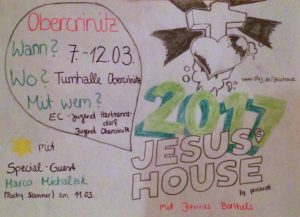 Obercrinitz
Wann? 7.-12.03.
Wo? Turnhalle Obercrinitz
Mit wem?
EC-Jugend Hartmanns-
dorf
Jugend Obercrinitz
mit
Special-Guest
Marco Michalzik
(Poetry Slammer) am 11.03.
2017
JESUS
HOUSE
by proChrist
mit Johannes Barthels